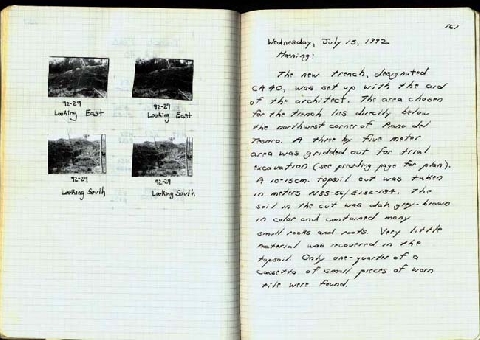 92-29
Looking East
92-29
Looking East
92-29
Looking South
92-29
Looking South
161
Wednesday, July 15, 1992
Morning:
The new trench, designated
CA40, was set up with the aid
of the architect. The area chosen
for the trench lies directly below
the northwest corner of Piano del
Tesoro. A three by five meter
area was gridded out for trial
excavation (see preceding page for plan).
A 10-15cm. topsoil cut was taken
in meters
soil in the cut was dark grey-brown
in color and contained many
small rocks and roots. Very little
material was recovered in the
topsoil. Only one-quarter of a
cassetta of small pieces of worn
tile were found.